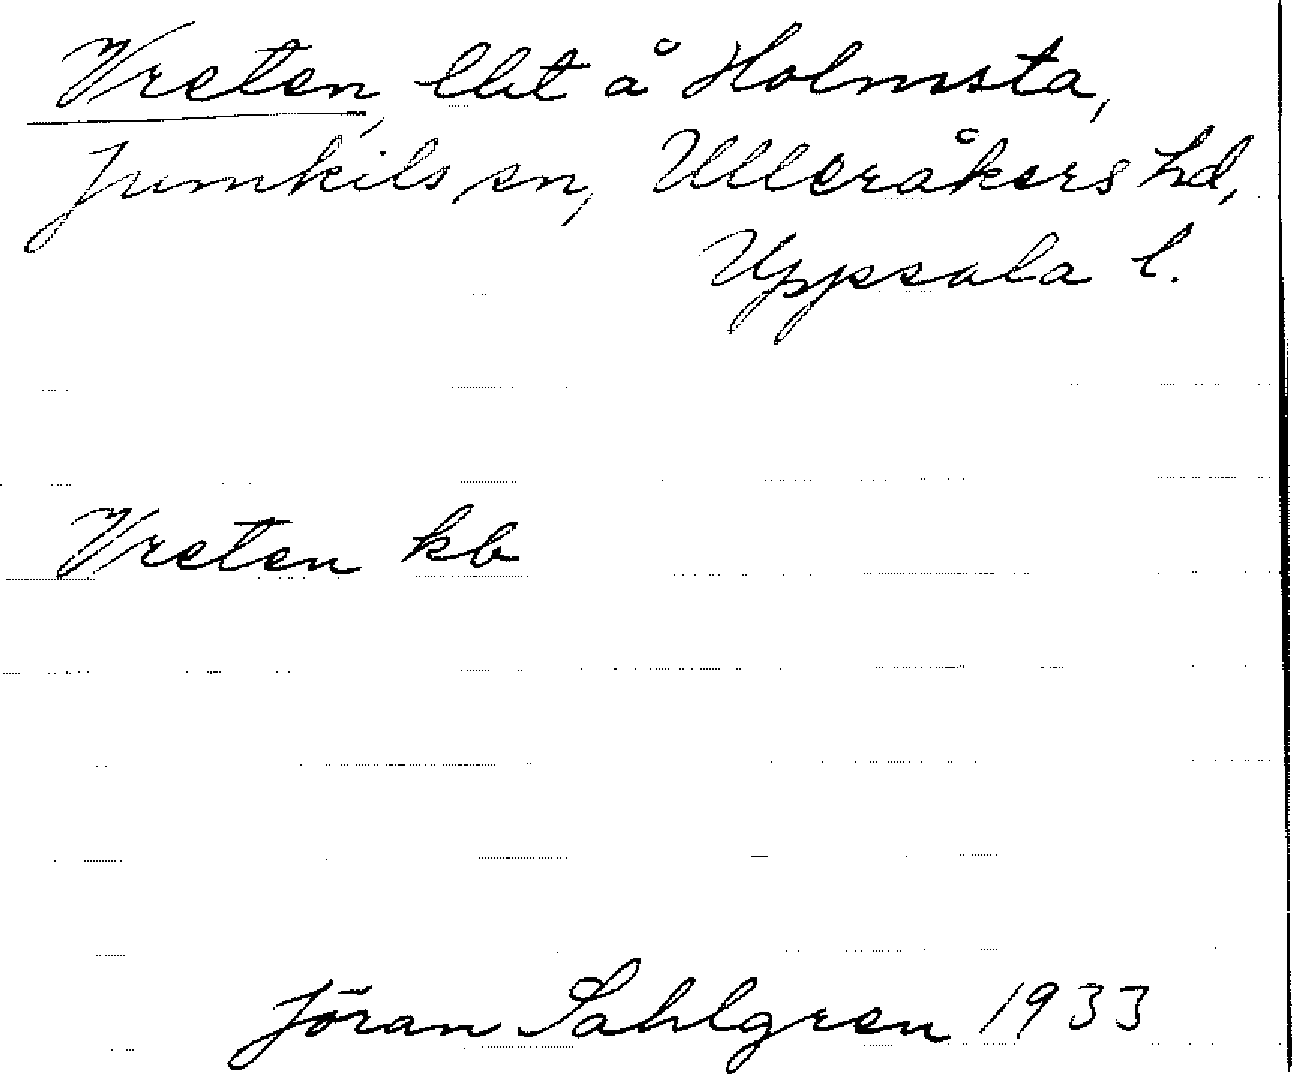 Vreten, llit å Holmsta,
Jumkils sn, Ulleråkers hd,
Uppsala l.
Vreten kb
Jöran Sahlgren 1933